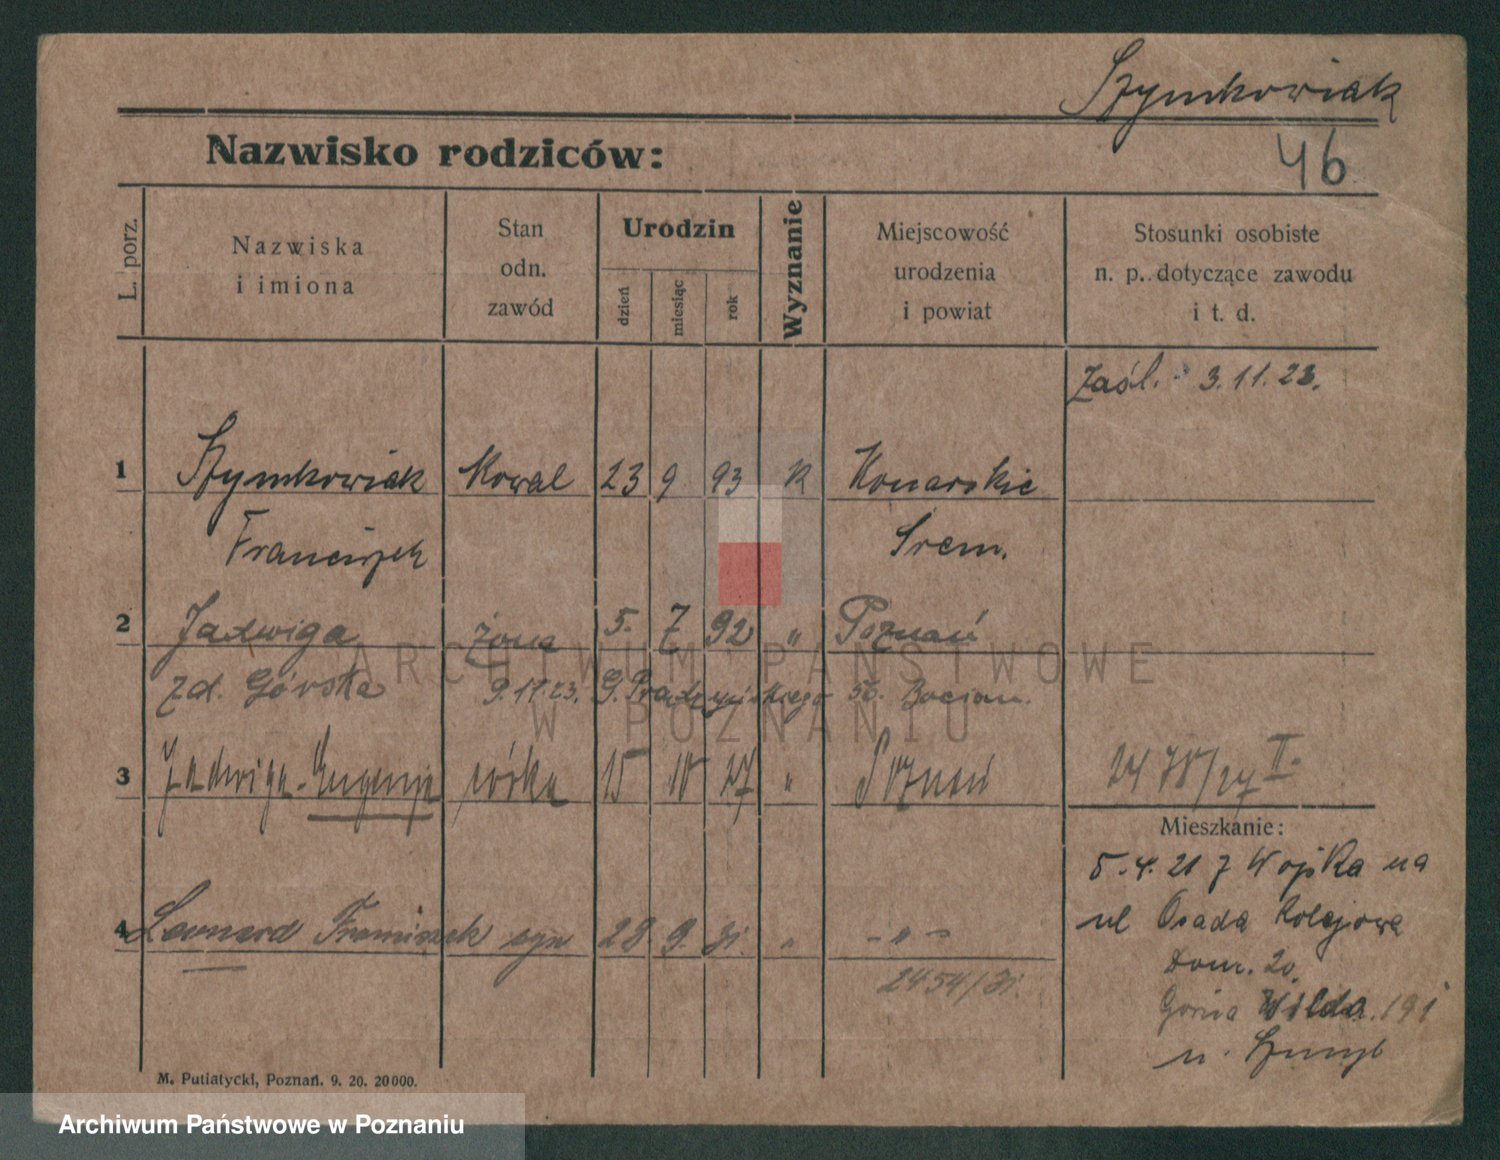 Szymkowiak
46
Nazwisko rodziców:
L. porz.
Nazwiska
i imiona
Stan
odn.
zawód
Urodzin
dzień
miesiąc
rok
Wyznanie
Miejscowość
urodzenia
i powiat
Stosunki osobiste
n. p. dotyczące zawodu
i t. d.
Zaśl. 3.11.23.
1 Szymkowiak Kowal 23 9 93 K Konarskie
Franciszek Śrem.
2 Jadwiga żona 5. 7 92 " Poznań
zd. Górska 9.11.23. G. Prądzyńskiego 56. Bocian.
3 Jadwiga-Eugenja córka 15 10 27 " Poznań 2478/27 II.
Mieszkanie:
5.4.21 z Wojska na
ul Osada Kolejowa
Dom. 20
4 Leonard Franciszek syn 28 9. 31. " - " -
2454/31.
Górna Wilda. 191
u.
M. Putiatycki, Poznań. 9. 20. 20000.
ARCHIWUM PAŃSTWOWE
W POZNANIU
Archiwum Państwowe w Poznaniu